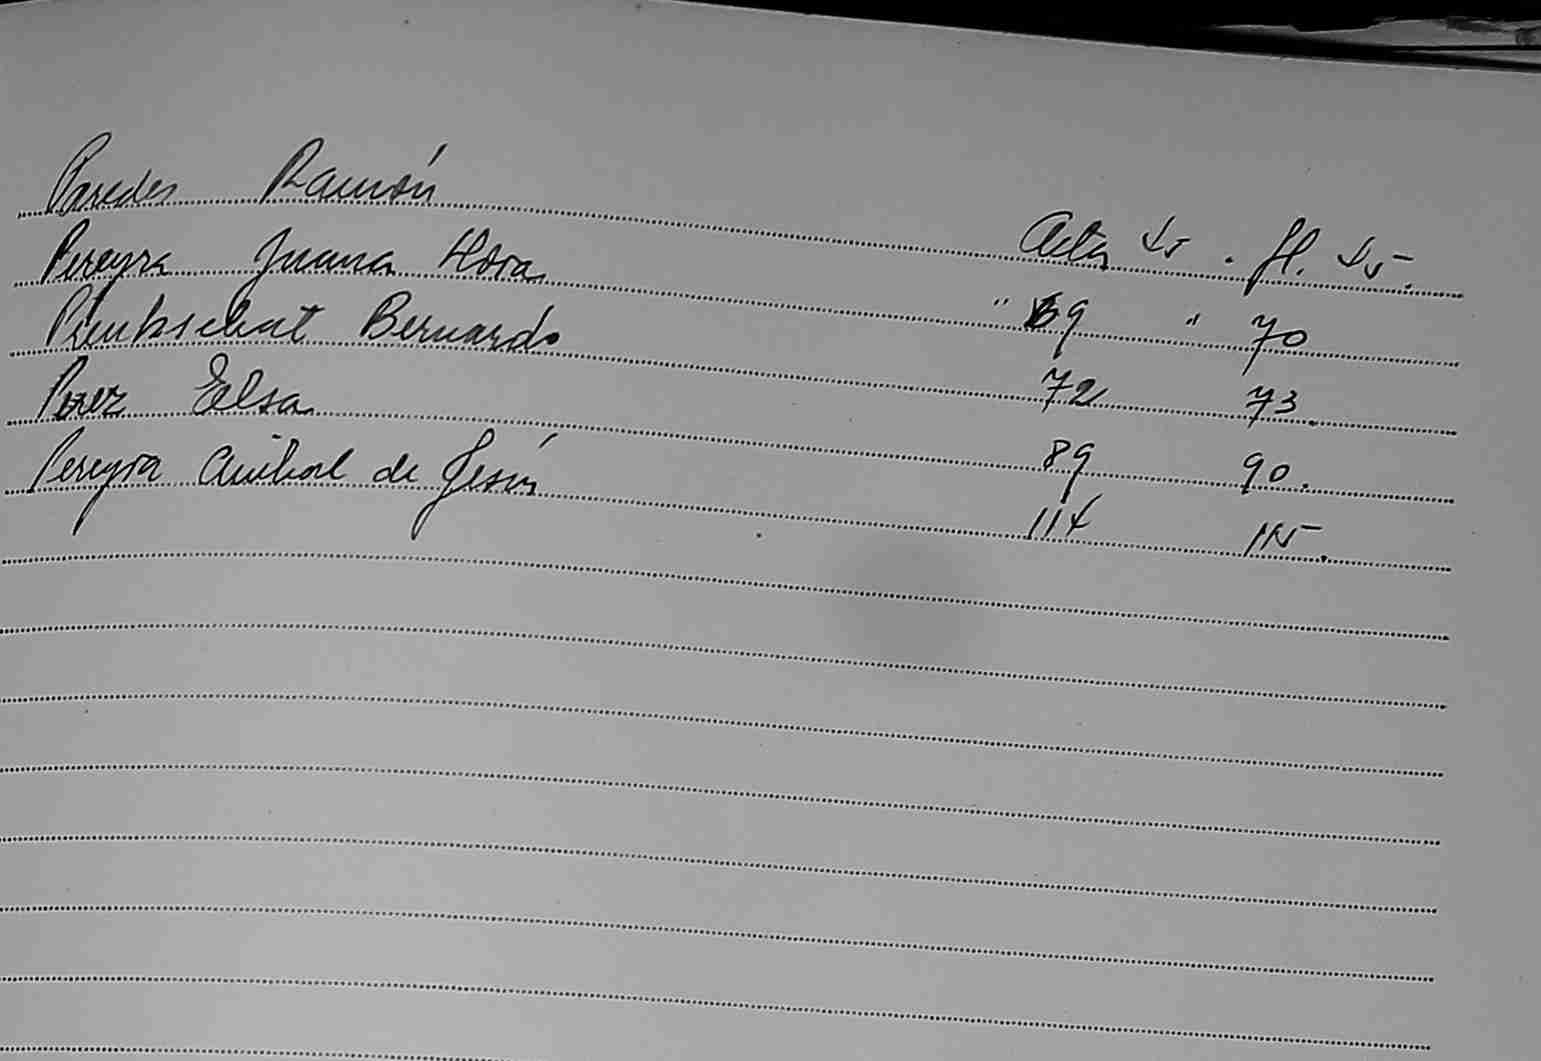 Paredes Ramón Acta . fl.
Pereyra Juana " 69 " 70
Bernardo 72 73.
Perez Elsa 89 90.
Pereyra Anibal de Jesús 114 115.